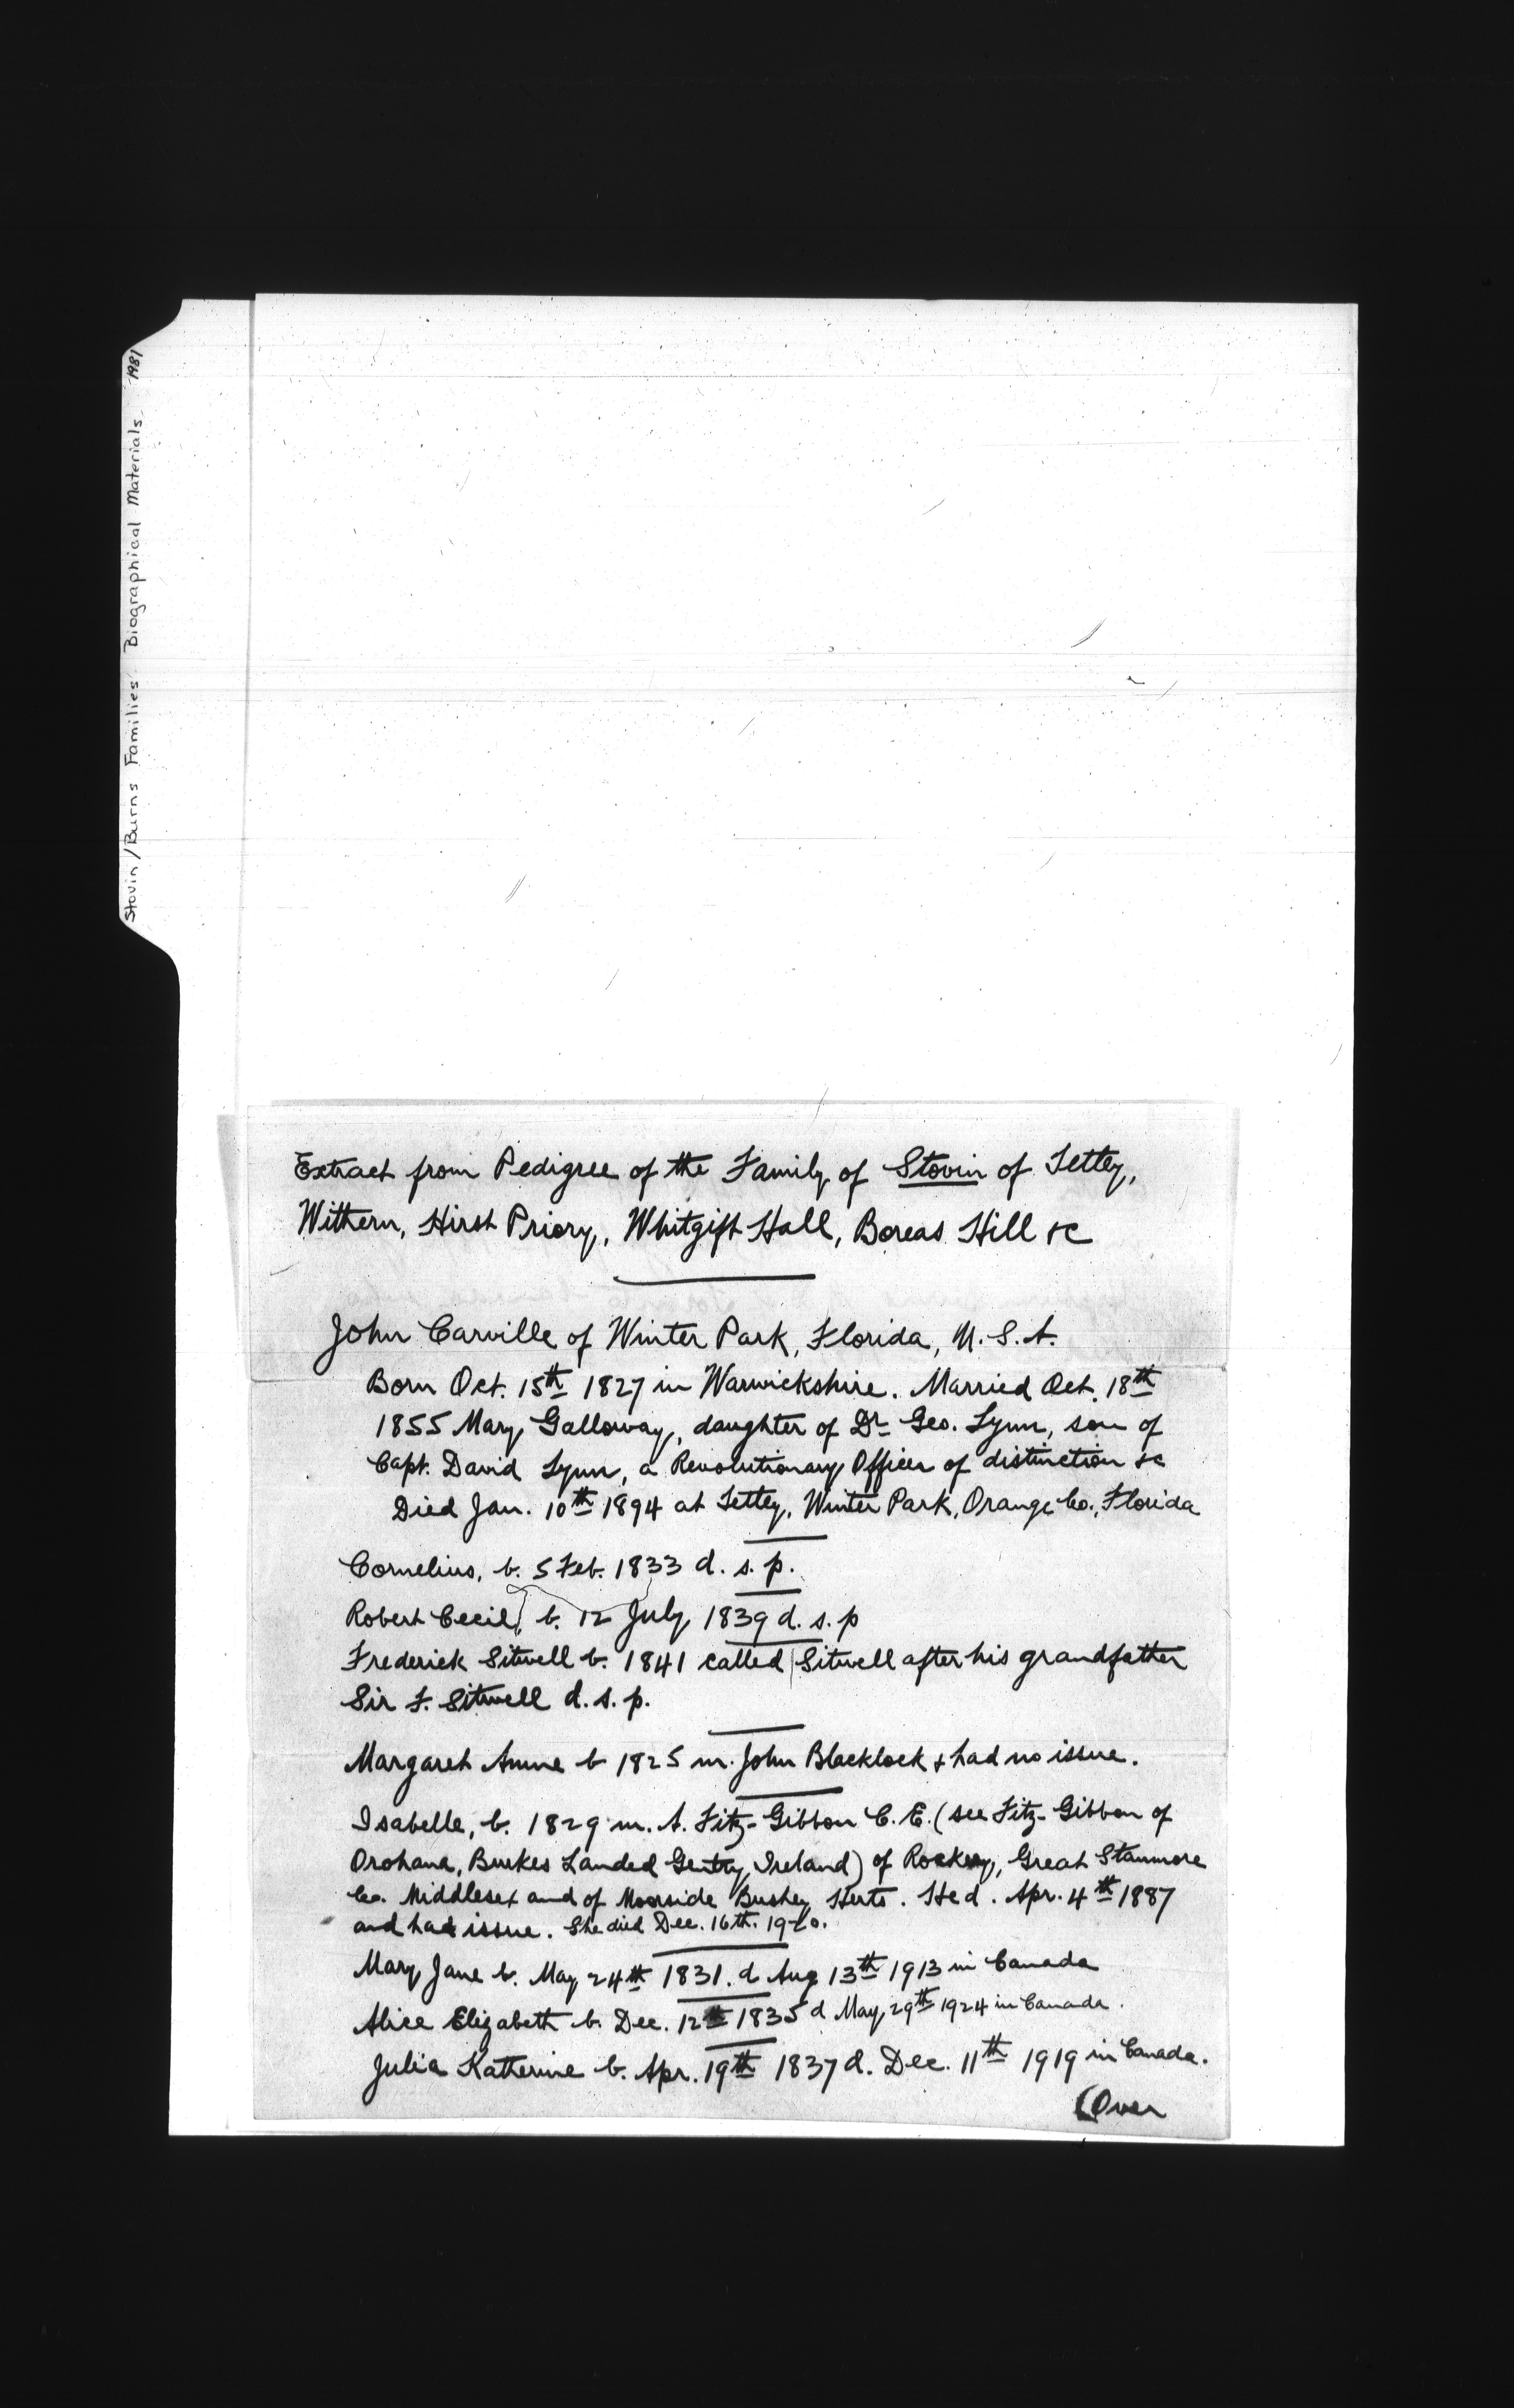 Stovin/Burns Families Biographical Materials 1981
Extract from Pedigree of the Family of Stovin of Tetley,
Withern, Hirst Priory, Whitgift Hall, Boreas Hill &c
John Carville of Winter Park, Florida, U.S.A.
Born Oct. 15th 1827 in Warwickshire. Married Oct. 18th
1855 Mary Galloway, daughter of Dr Geo. Lynn, son of
Capt. David Lynn, a Revolutionary Officer of distinction &c
Died Jan. 10th 1894 at Tetley, Winter Park, Orange Co., Florida
Cornelius, b. 5 Feb. 1833 d. s. p.
Robert Cecil, b. 12 July 1839 d. s. p
Frederick Sitwell b. 1841 called Sitwell after his grandfather
Sir F. Sitwell d. s. p.
Margaret Anne b 1825 m. John Blacklock & had no issue.
Isabelle, b. 1829 m. A. Fitz-Gibbon C. E. (see Fitz-Gibbon of
Orohana, Burkes Landed Gentry, Ireland) of Rookery, Great Stanmore
Co. Middlesex and of Moorside Bushey Herts. He d. Apr. 4th 1887
and had issue. She died Dec. 16th.
Mary Jane b. May 24th 1831. d Aug 13th 1913 in Canada
Alice Elizabeth b. Dec. 12th 1835 d May 29th 1924 in Canada.
Julia Katherine b. Apr. 19th 1837 d. Dec. 11th 1919 in Canada.
(Over